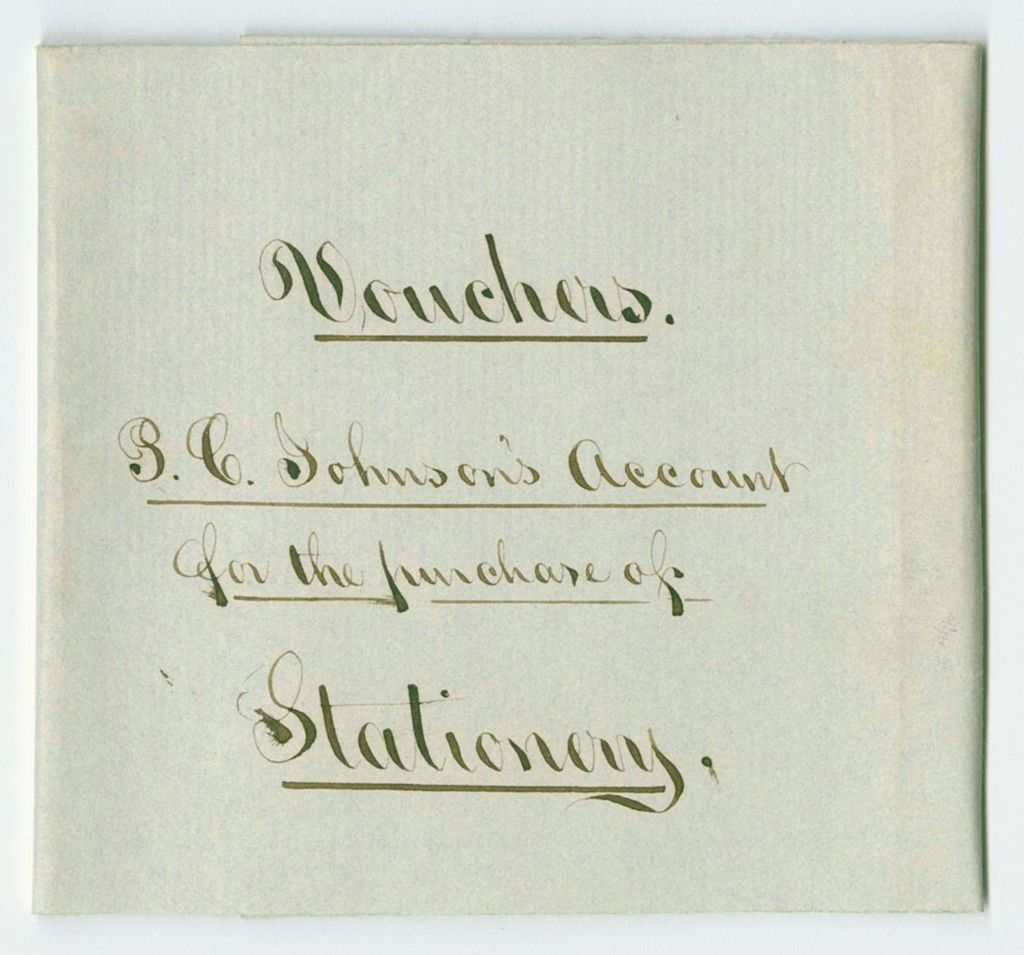 Vouchers.
B. C. Johnson's Account
for the purchase of
Stationery.